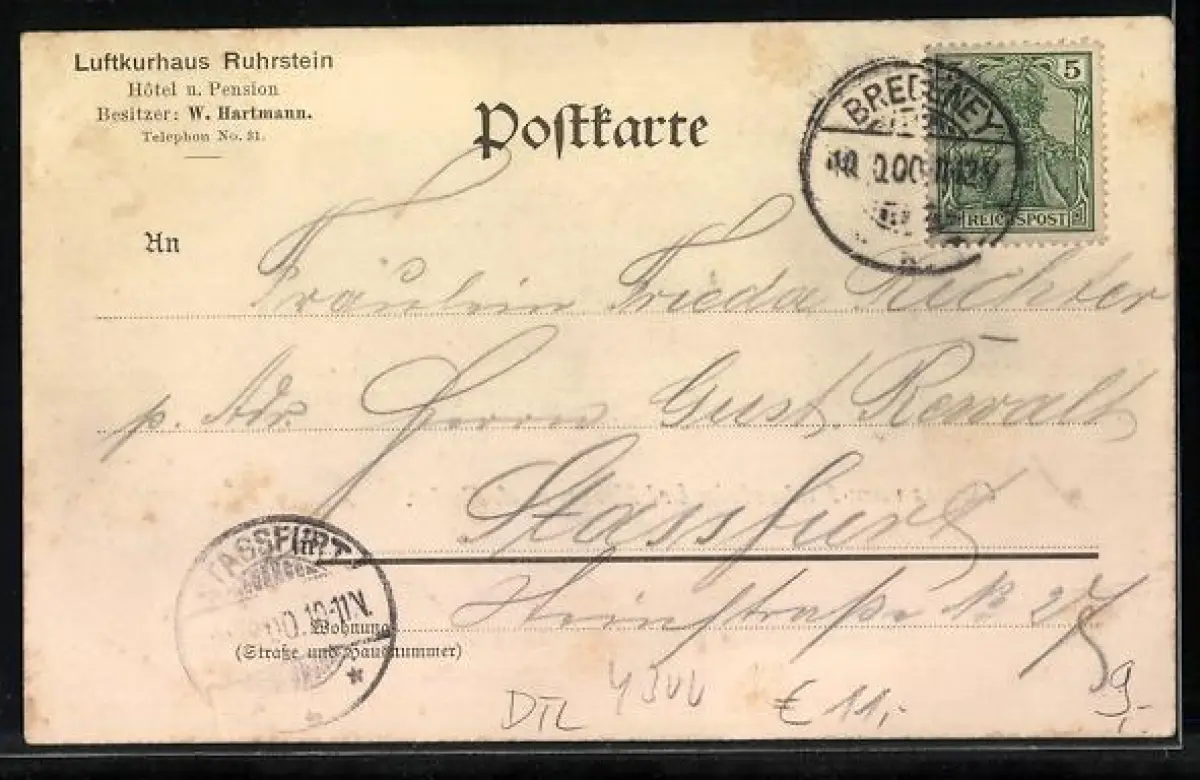 Luftkurhaus Ruhrstein
Hôtel u. Pension
Besitzer: W. Hartmann.
Telephon No. 31.
Postkarte
5 5
BREDENEY
REICHSPOST
An
Fräulein Frieda Richter
p. Adr. Herrn Gust. Rewalt
Stassfurt
in
STASSFURT
Wohnung
(Straße und Hausnummer)
№ 27
DTL
€ 11,-
9,-